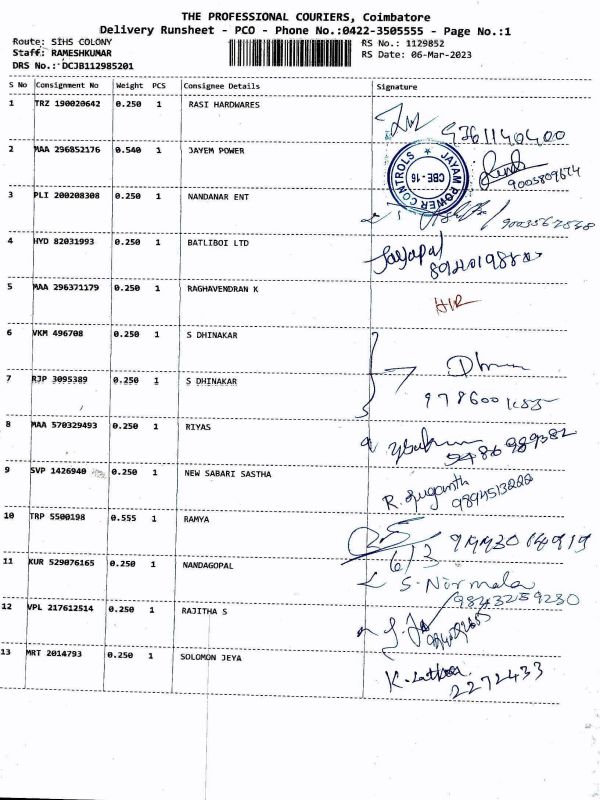 THE PROFESSIONAL COURIERS, Coimbatore
Delivery Runsheet - PCO - Phone No.:0422-3505555 - Page No.:1
Route: SIHS COLONY RS No.: 1129852
Staff: RAMESHKUMAR RS Date: 06-Mar-2023
DRS No.: DCJB112985201
S No Consignment No Weight PCS Consignee Details Signature
1 TRZ 190020642 0.250 1 RASI HARDWARES
9361140400
2 MAA 296852176 0.540 1 JAYEM POWER
JAYAM POWER CONTROLS ★ CBE - 16
3 PLI 200208308 0.250 1 NANDANAR ENT
4 HYD 82031993 0.250 1 BATLIBOI LTD
Jayapal
5 MAA 296371179 0.250 1 RAGHAVENDRAN K
H/R
6 VKM 496708 0.250 1 S DHINAKAR
7 RJP 3095389 0.250 1 S DHINAKAR
8 MAA 570329493 0.250 1 RIYAS
9 SVP 1426940 0.250 1 NEW SABARI SASTHA
R. Suganth
9894513222
10 TRP 5500198 0.555 1 RAMYA
6/3
11 KUR 529076165 0.250 1 NANDAGOPAL
S. Nirmala
9843259230
12 VPL 217612514 0.250 1 RAJITHA S
13 MRT 2014793 0.250 1 SOLOMON JEYA
2272433